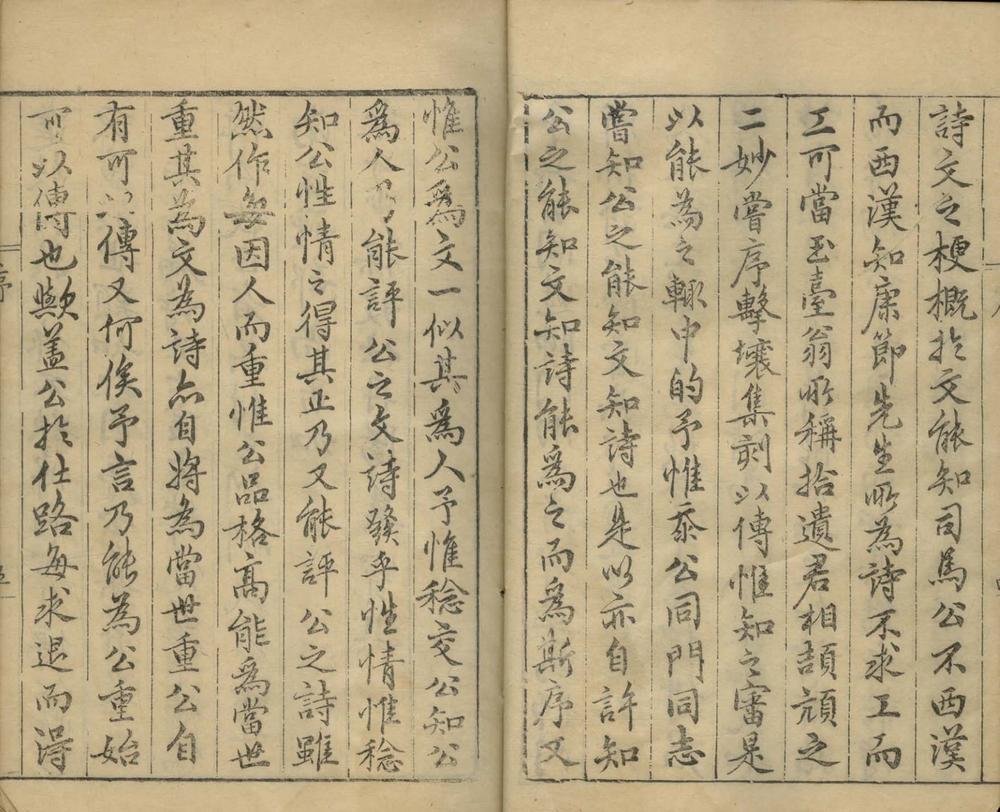 詩文之梗概於文能知司馬公不西漢
而西漢知康節先生所為詩不求工而
工可當玉臺翁所稱拾遺君相頡頏之
二妙嘗序擊壤集刻以傳惟知之審是
以能為之輙中的予惟忝公同門同志
嘗知公之能知文知詩也是以亦自許知
公之能知文知詩能爲之而爲斯序又
惟公爲文一似其爲人予惟稔交公知公
爲人乃能評公之文詩發乎性情惟稔
知公性情之得其正乃又能評公之詩雖
然作每因人而重惟公品格高能爲當世
重其為文為詩亦自將為當世重公自
有可以傳又何俟予言乃能為公重始
可以傳也歟蓋公於仕路每求退而得
序